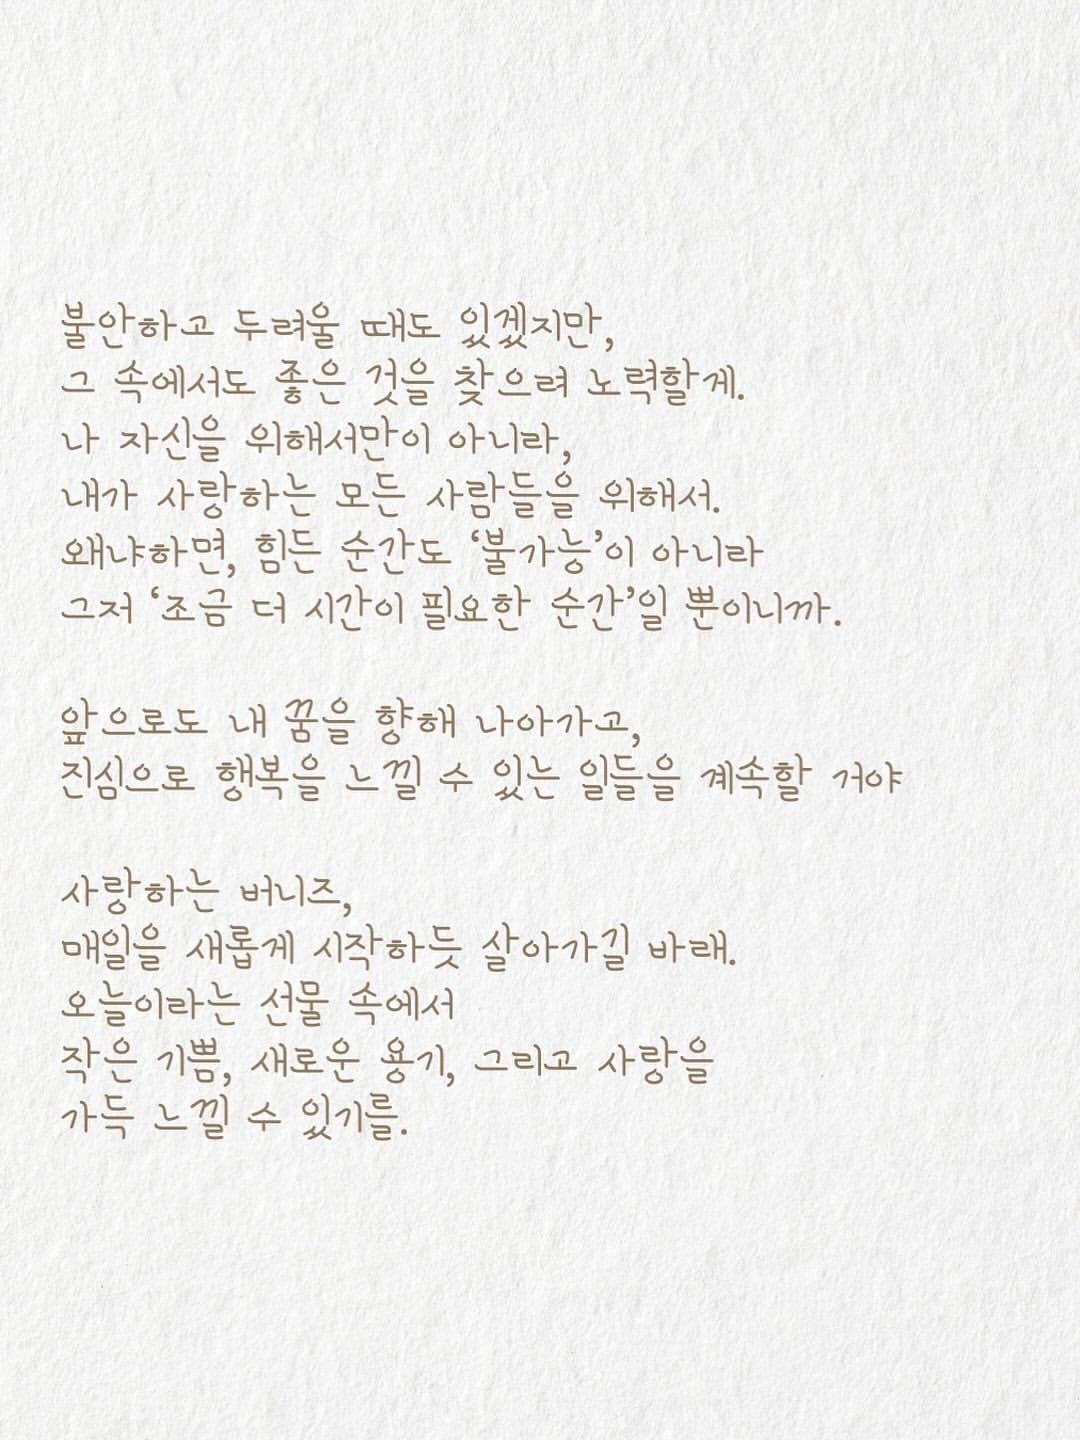 불안하고 두려울 때도 있겠지만,
그 속에서도 좋은 것을 찾으려 노력할게.
나 자신을 위해서만이 아니라,
내가 사랑하는 모든 사람들을 위해서.
왜냐하면, 힘든 순간도 ‘불가능’이 아니라
그저 ‘조금 더 시간이 필요한 순간’일 뿐이니까.
앞으로도 내 꿈을 향해 나아가고,
진심으로 행복을 느낄 수 있는 일들을 계속할 거야
사랑하는 버니즈,
매일을 새롭게 시작하듯 살아가길 바래.
오늘이라는 선물 속에서
작은 기쁨, 새로운 용기, 그리고 사랑을
가득 느낄 수 있기를.